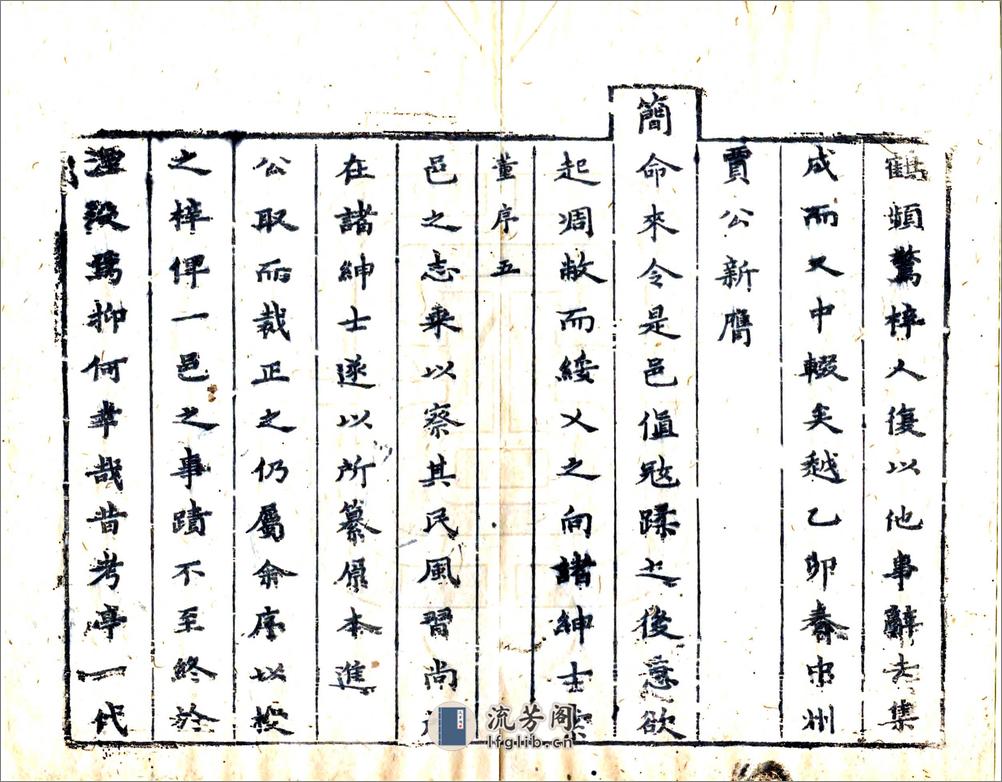 鶴頻驚梓人復以他事辭去集
成而又中輟矣越乙卯春忠州
賈公新膺
簡命來令是邑值冦蹂之後意欲
起凋敝而綏乂之向諸紳士索
董序五
邑之志乘以察其民風習尚
在諸紳士遂以所纂原本進
公取而裁正之仍屬余序以授
之梓俾一邑之事蹟不至終於
湮沒焉抑何幸哉昔考亭一代
流芳阁
lfglib.cn